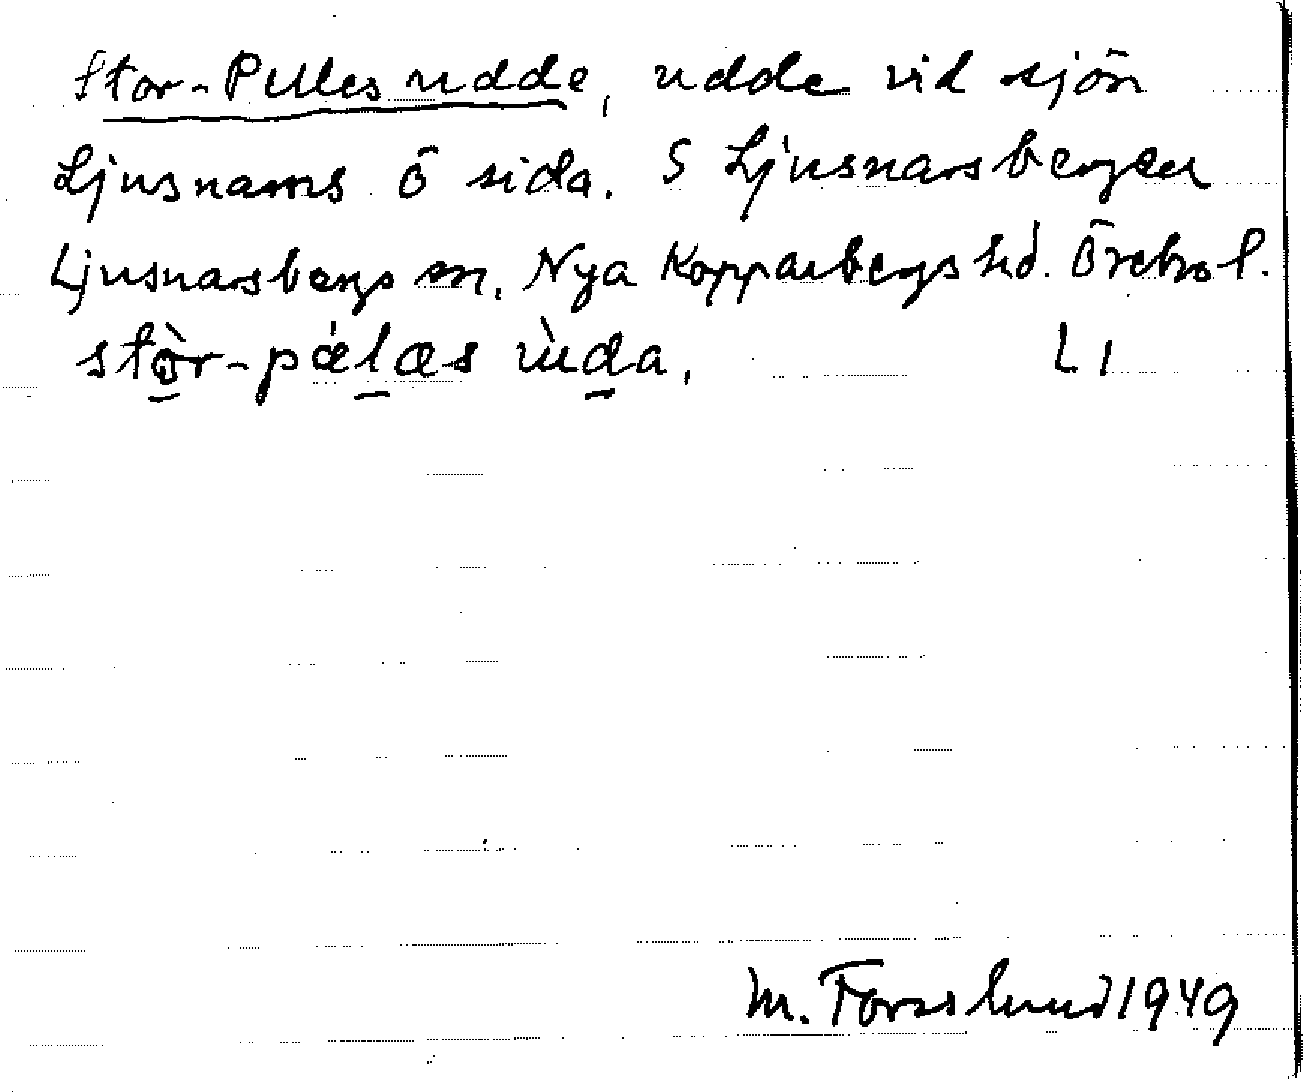 Stor-Pelles udde, udde vid sjön
Ljusnarns ö sida. S Ljusnarsbergen
Ljusnarsbergs sn. Nya Kopparbergs hd. Örebro l.
stòr-pǽlæs ùda.
L1
M. Forsslund 1949